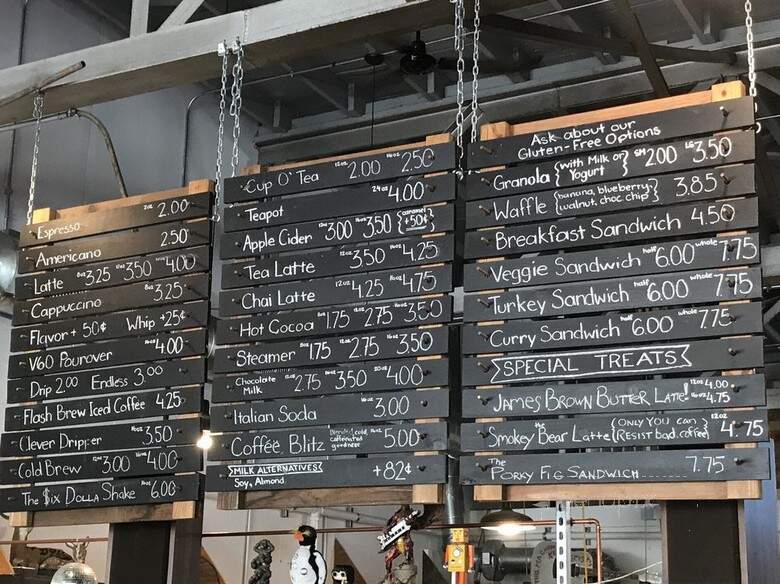 Espresso 2oz 2.00
Americano 2.50
Latte 8oz 3.25 12oz 3.50 16oz 4.00
Cappuccino 8oz 3.25
Flavor + 50¢ Whip +25¢
V60 Pourover 16oz 4.00
Drip 2.00 Endless 3.00
Flash Brew Iced Coffee 4.25
Clever Dripper 16oz 3.50
Cold Brew 3.00 16oz 4.00
The $ix Dolla Shake 6.00
Cup O' Tea 12oz 2.00 16oz 2.50
Teapot 24oz 4.00
Apple Cider 3.00 3.50 {caramel +50¢}
Tea Latte 12oz 3.50 16oz 4.25
Chai Latte 12oz 4.25 16oz 4.75
Hot Cocoa 8oz 1.75 12oz 2.75 16oz 3.50
Steamer 8oz 1.75 12oz 2.75 16oz 3.50
Chocolate Milk 2.75 3.50 4.00
Italian Soda 16oz 3.00
Coffee Blitz Blended, cold, caffeinated goodness 16oz 5.00
MILK ALTERNATIVES
Soy, Almond +82¢
Ask about our
Gluten-Free Options
Granola {with Milk or Yogurt} SM 2.00 LG 3.50
Waffle {banana, blueberry, walnut, choc chip} 3.85
Breakfast Sandwich 4.50
Veggie Sandwich half 6.00 whole 7.75
Turkey Sandwich half 6.00 whole 7.75
Curry Sandwich half 6.00 whole 7.75
SPECIAL TREATS
James Brown Butter Latte! 12oz 4.00 16oz 4.75
the Smokey Bear Latte {ONLY YOU can RESIST bad coffee} 12oz 4.75
The Porky Fig Sandwich 7.75